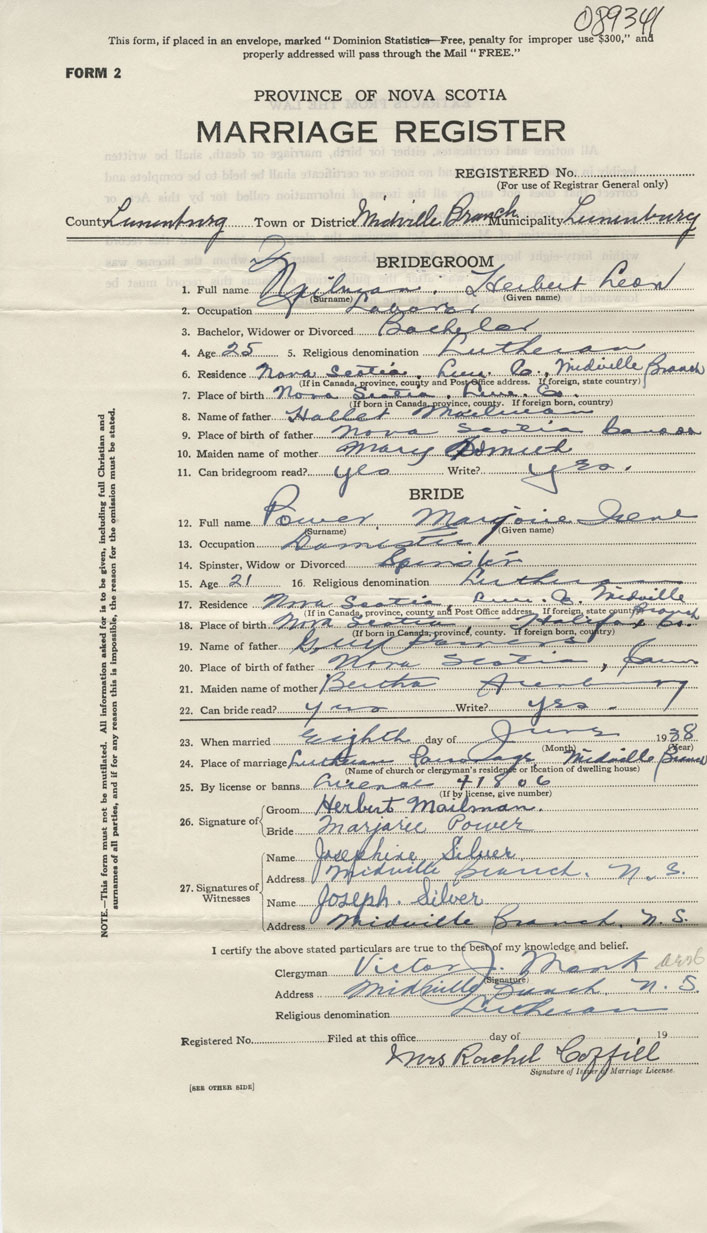 089341
This form, if placed in an envelope, marked "Dominion Statistics—Free, penalty for improper use $300," and
properly addressed will pass through the Mail "FREE."
FORM 2
PROVINCE OF NOVA SCOTIA
MARRIAGE REGISTER
REGISTERED No.
(For use of Registrar General only)
County Lunenburg Town or District Midville Branch Municipality Lunenburg
BRIDEGROOM
1. Full name Mailman, Herbert Leon
(Surname) (Given name)
2. Occupation Laborer
3. Bachelor, Widower or Divorced Bachelor
4. Age 25 5. Religious denomination Lutheran
6. Residence Nova Scotia, Lun. Co., Midville Branch
(If in Canada, province, county and Post Office address. If foreign, state country)
7. Place of birth Nova Scotia, Lun. Co.
(If born in Canada, province, county. If foreign born, country)
8. Name of father Hallet Mailman
9. Place of birth of father Nova Scotia Canada
10. Maiden name of mother Mary
11. Can bridegroom read? yes Write? yes.
BRIDE
12. Full name Power, Marjorie Irene
(Surname) (Given name)
13. Occupation Domestic
14. Spinster, Widow or Divorced Spinster
15. Age 21 16. Religious denomination Lutheran
17. Residence Nova Scotia, Lun. Co. Midville Branch
(If in Canada, province, county and Post Office address. If foreign, state country)
18. Place of birth Nova Scotia, Halifax Co.
(If born in Canada, province, county. If foreign born, country)
19. Name of father Guy
20. Place of birth of father Nova Scotia,
21. Maiden name of mother Bertha
22. Can bride read? yes Write? yes.
23. When married Eighth day of June 1938
(Month) (Year)
24. Place of marriage Lutheran Parsonage, Midville Branch
(Name of church or clergyman's residence or location of dwelling house)
25. By license or banns License 41806
(If by license, give number)
26. Signature of Groom Herbert Mailman.
Bride Marjorie Power
27. Signatures of Witnesses
Name Josephine Silver
Address Midville Branch, N.S.
Name Joseph Silver
Address Midville Branch, N.S.
I certify the above stated particulars are true to the best of my knowledge and belief.
Clergyman Victor J. Monk
(Signature)
Address Midville Branch, N.S.
Religious denomination Lutheran
Registered No. Filed at this office day of 19
Mrs Rachel Coffill
Signature of Issuer of Marriage License.
[SEE OTHER SIDE]
NOTE.—This form must not be mutilated. All information asked for is to be given, including full Christian and
surnames of all parties, and if for any reason this is impossible, the reason for the omission must be stated.